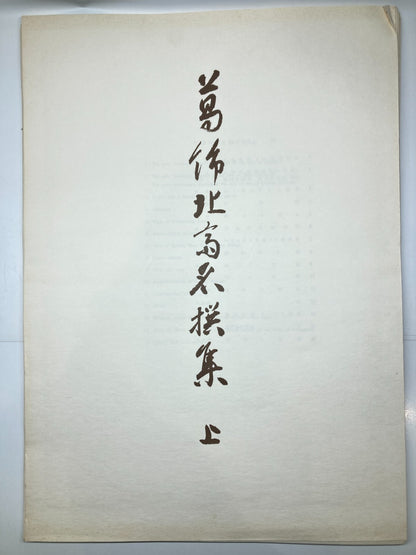 葛飾北斎名撰集 上